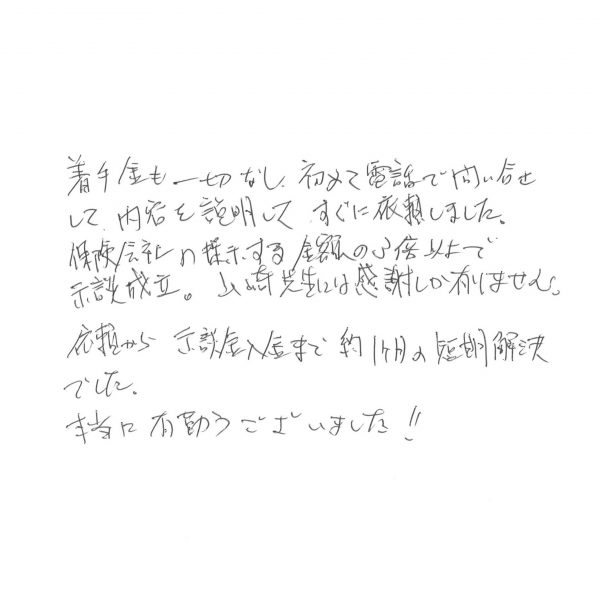 着手金も一切なし、初めて電話で問い合せ
して、内容を説明して すぐに依頼しました。
保険会社の提示する金額の3倍以上で
示談成立。 山﨑先生には感謝しか有りません。
依頼から 示談金入金まで 約1ヶ月の短期解決
でした。
本当に有難うございました!!